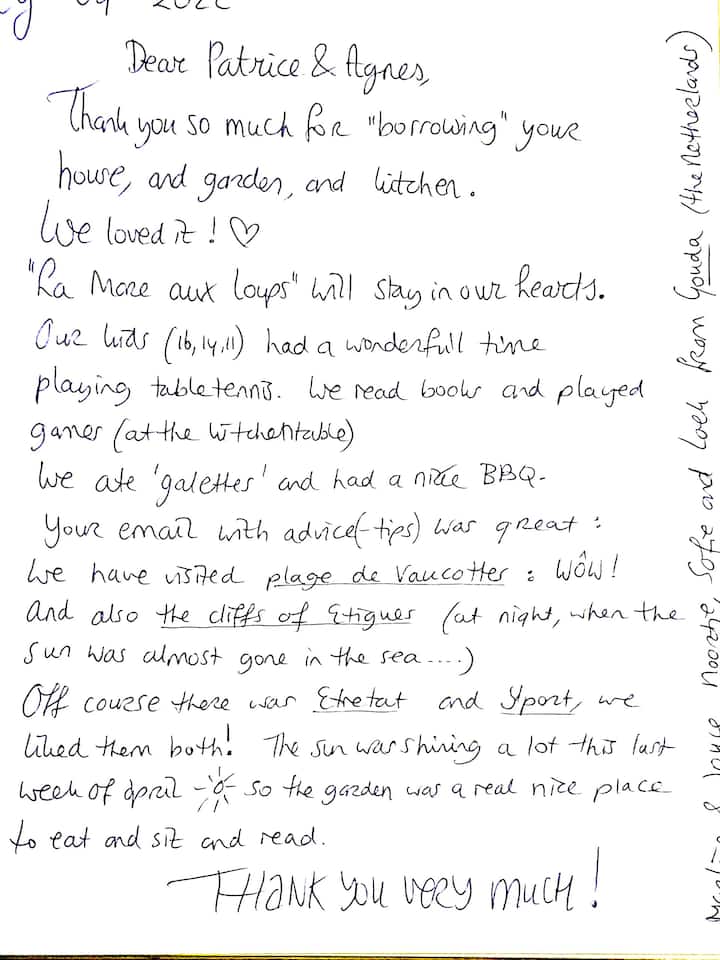 2022
Dear Patrice & Agnes,
Thank you so much for "borrowing" your
house, and garden, and kitchen.
We loved it! ♡
"La Mare aux Loups" will stay in our hearts.
Our kids (16, 14, 11) had a wonderfull time
playing tabletennis. We read books and played
games (at the kitchentable)
We ate 'galettes' and had a nice BBQ.
Your email with advice (-tips) was great :
We have visited plage de Vaucottes : WÔW!
And also the cliffs of Etigues (at night, when the
sun was almost gone in the sea ....)
Off course there was Etretat and Yport, we
liked them both! The sun was shining a lot this last
week of april so the garden was a real nice place
to eat and sit and read.
THANK YOU VERY MUCH!
& Noortje, Sofie and Loek from Gouda (the Netherlands)